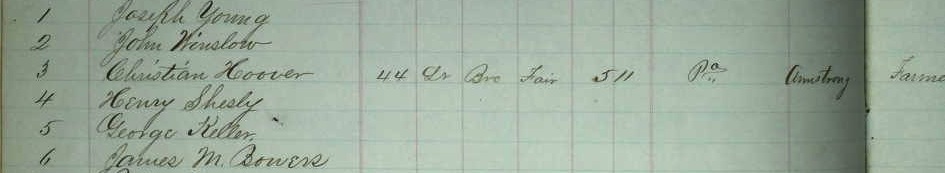 1 Joseph Young
2 John Winslow
3 Christian Hoover 44 Dr Bro Fair 5 11 Pa Armstrong Farme
4 Henry Shesly
5 George Keller.
6 James M. Bowers